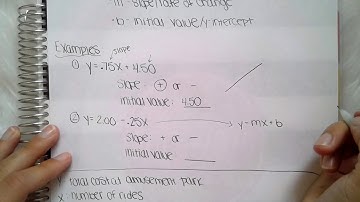 m - slope/rate of change
b - initial value/y-intercept
Examples
slope
① y = .75x + 4.50
slope: + or -
initial value: 4.50
② y = 2.00 - .25x → y = mx + b
slope: + or -
initial value: ____
total cost at amusement park
x number of rides